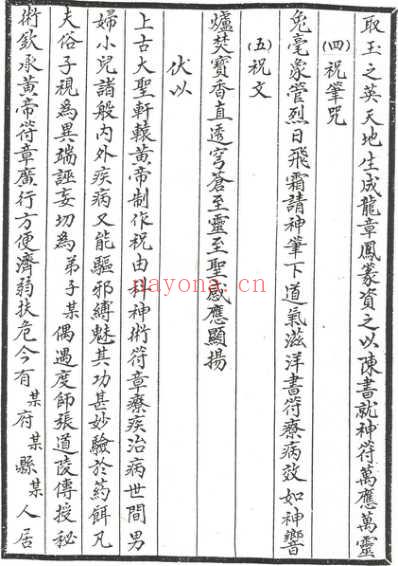 取玉之英天地生成龍章鳳篆資之以陳書就神符萬應萬靈
(四)祝筆咒
兔毫象管烈日飛霜請神筆下道氣滋洋書符療病效如神響
(五)祝文
爐焚寶香直透穹蒼至靈至聖感應顯揚
伏以
上古大聖軒轅黃帝制作祝由科神術符章療疾治病世間男
婦小兒諸般內外疾病又能驅邪縛魅其功甚妙驗於葯餌凡
夫俗子視為異端誣妄切為弟子某偶遇度師張道陵傳授秘
術欽承黃帝符章廣行方便濟弱扶危今有某府某縣某人居
nayona.cn